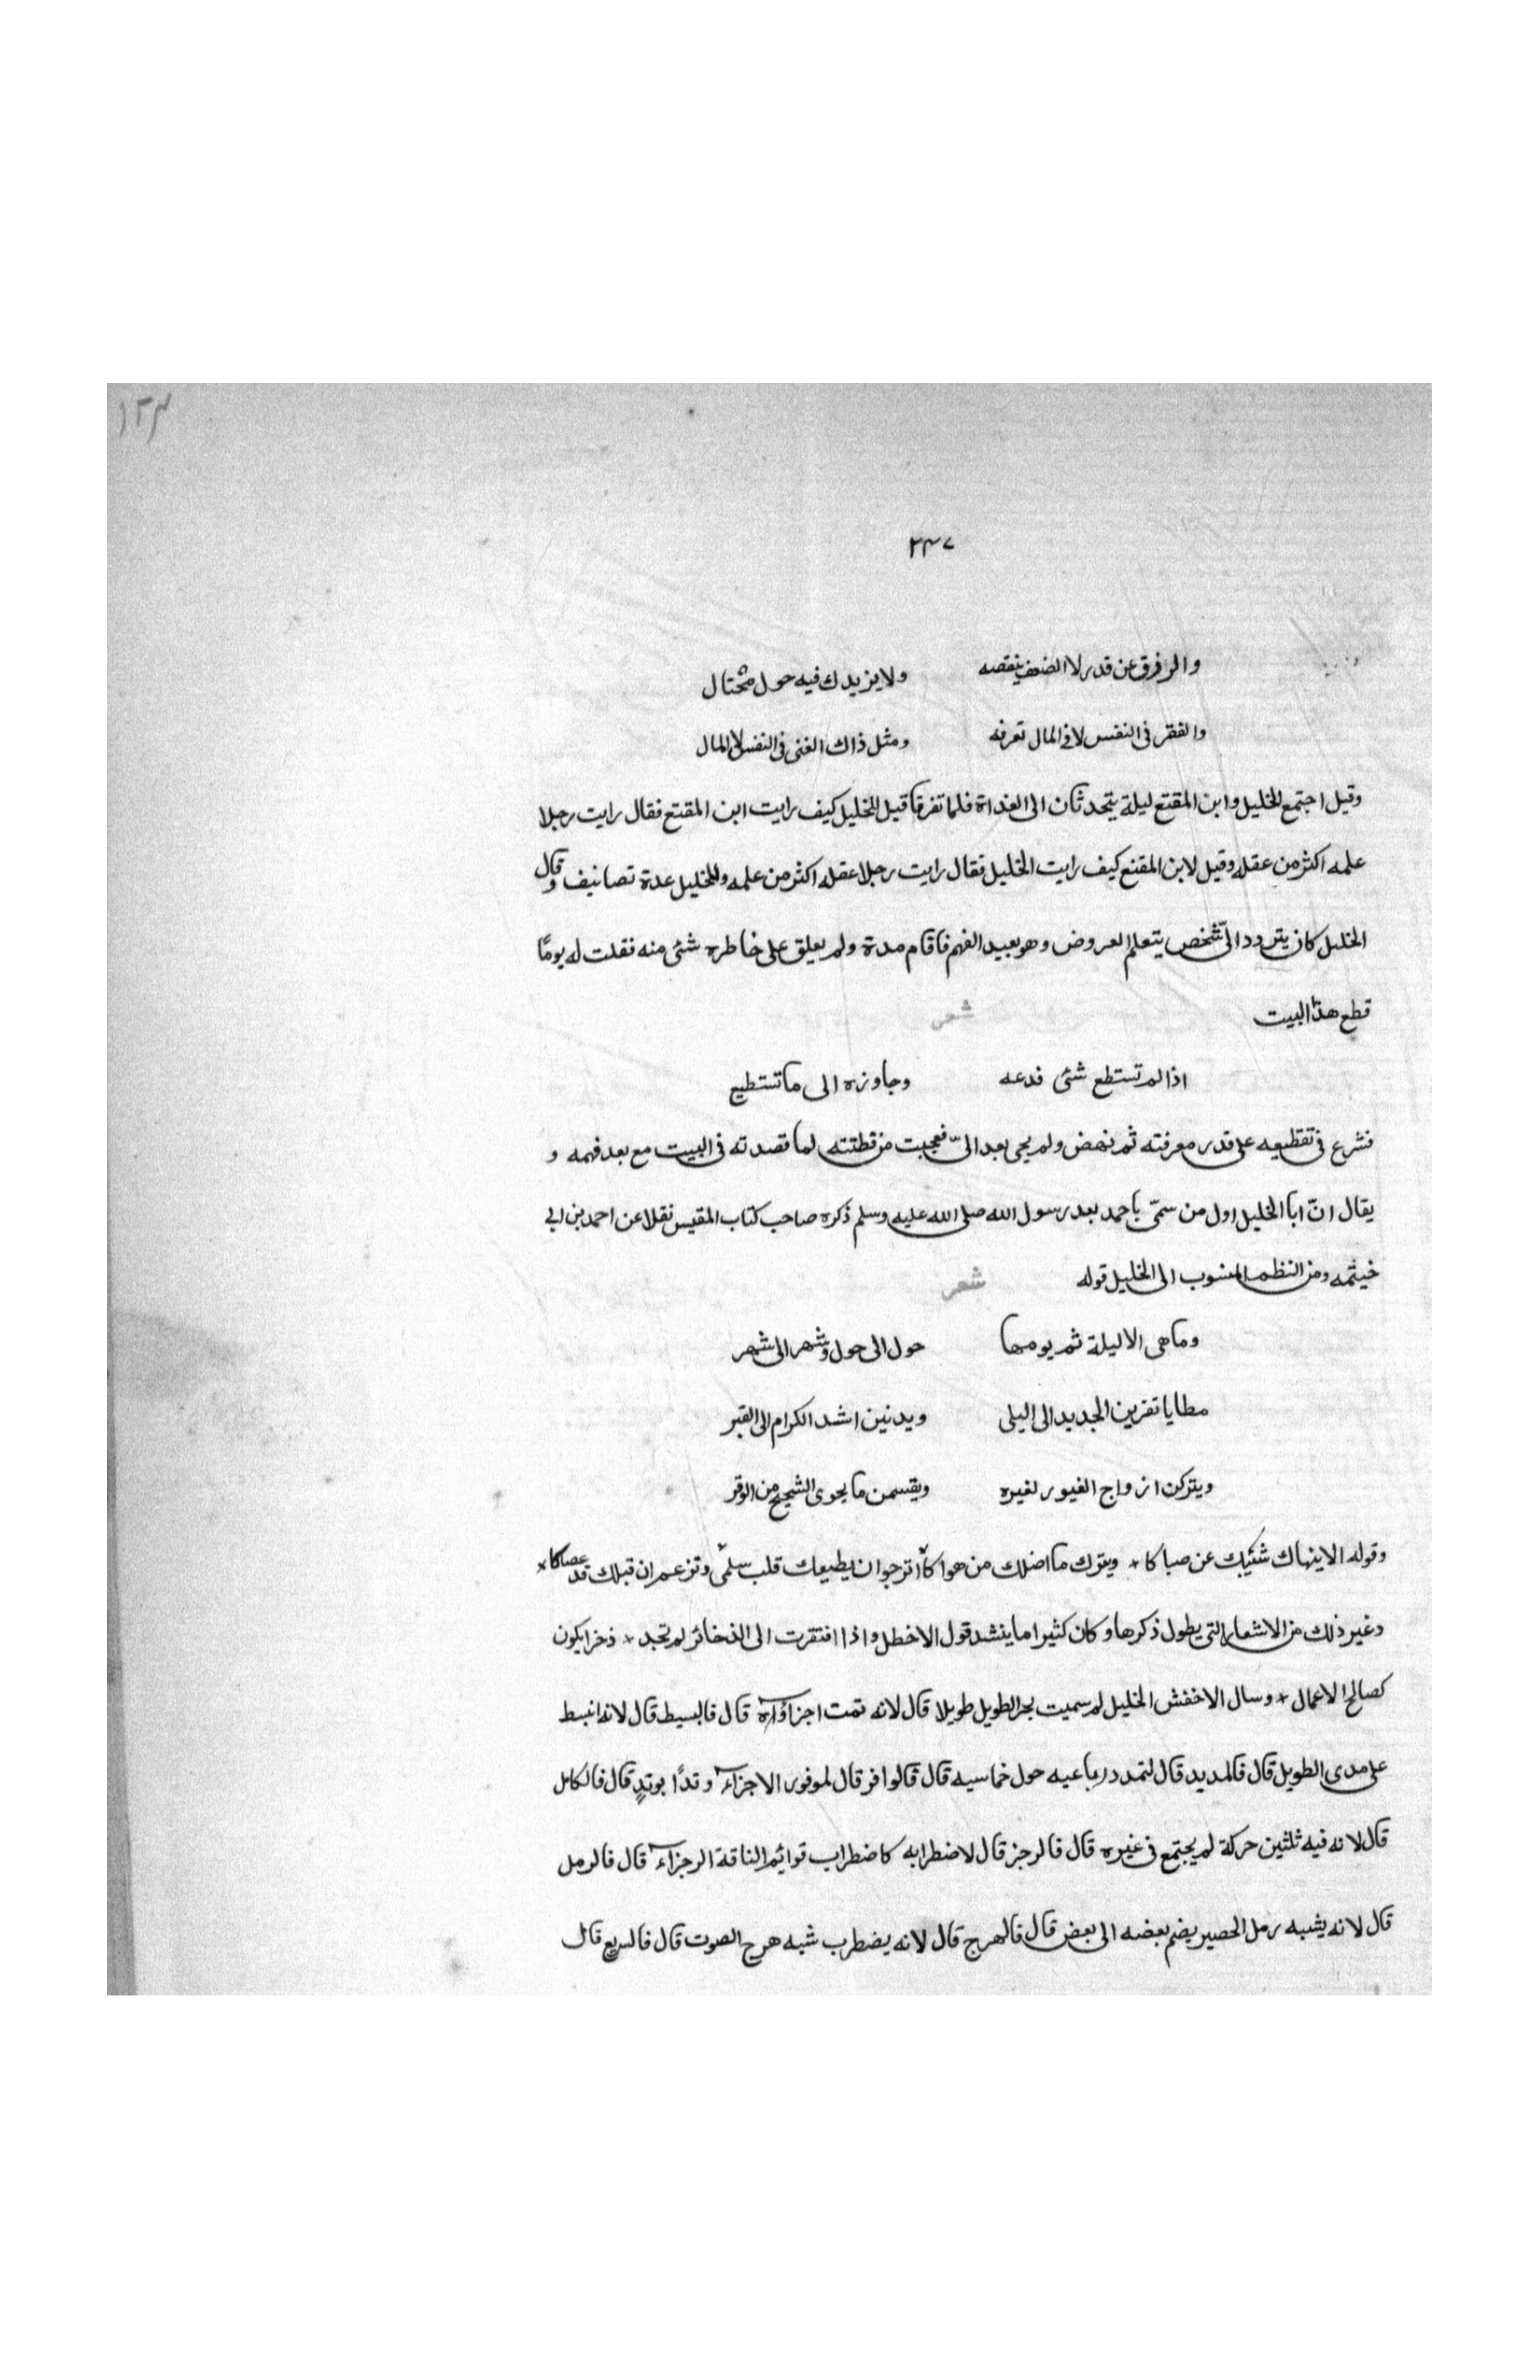 ١٢٣
٢٣٧
والرفرق عن قدر لا الضعف ينقصه ولا يزيدك فيه حول محتال
والفقر فى النفس لا فى المال تعرفه ومثل ذاك الغنى فى النفس لا المال
وقيل اجتمع الخليل وابن المقنع ليلة يتحدثان الى الغداة فلما تفرقا قيل للخليل كيف رايت ابن المقنع فقال رايت رجلا
علمه اكثر من عقله وقيل لابن المقنع كيف رايت الخليل فقال رايت رجلا عقله اكثر من علمه وللخليل عدة تصانيف وقال
الخليل كان يتردد الىّ شخص يتعلم العروض وهو بعيد الفهم فاقام مدة ولم يعلق على خاطره شئ منه فقلت له يومًا
قطع هذا البيت شعر
اذا لم تستطع شئ فدعه وجاوزه الى ما تستطيع
فشرع فى تقطيعه على قدر معرفته ثم نهض ولم يجى بعد الىّ فعجبت من قطنته لما قصدته فى البيت مع بعد فهمه و
يقال انّ ابا الخليل اول من سمّى باحمد بعد رسول الله صلى الله عليه وسلم ذكره صاحب كتاب المقيس نقلا عن احمد بن ابى
خيثمه ومن النظم المنسوب الى الخليل قوله شعر
وما هى الا ليلة ثم يومها حول الى حول وشهر الى شهر
مطايا تقربن الجديد الى البلى ويدنين اشد الكرام الى القبر
ويتركن ازواج الغيور لغيره ويقسمن ما يحوى الشحيح من الوقر
وقوله الا ينهاك شيبك عن صباكا + ويترك ما اضلك من هواكا أترجو ان يطيعك قلب سلمى وتزعم ان قبلك قد عصاكا +
وغير ذلك من الاشعار التى يطول ذكرها وكان كثيرا ما ينشد قول الاخطل واذا افتقرت الى الذخائر لم تجد + ذخرا يكون
كصالح الاعمال + وسال الاخفش الخليل لم سميت بحر الطويل طويلا قال لانه تمت اجزاؤه قال فالبسيط قال لانه انبسط
على مدى الطويل قال فالمديد قال لتمدد رباعيه حول خماسيه قال قالوافر قال لموفور الاجزاء وتدًا بوتدٍ قال فالكامل
قال لانه فيه ثلثين حركة لم يجتمع فى غيره قال فالرجز قال لاضطرابه كاضطراب قوائم الناقة الرجزاء قال فالرمل
قال لانه يشبه رمل الحصير يضم بعضه الى بعض قال فالهرج قال لانه يضطرب شبه هرج الصوت قال فالسريع قال